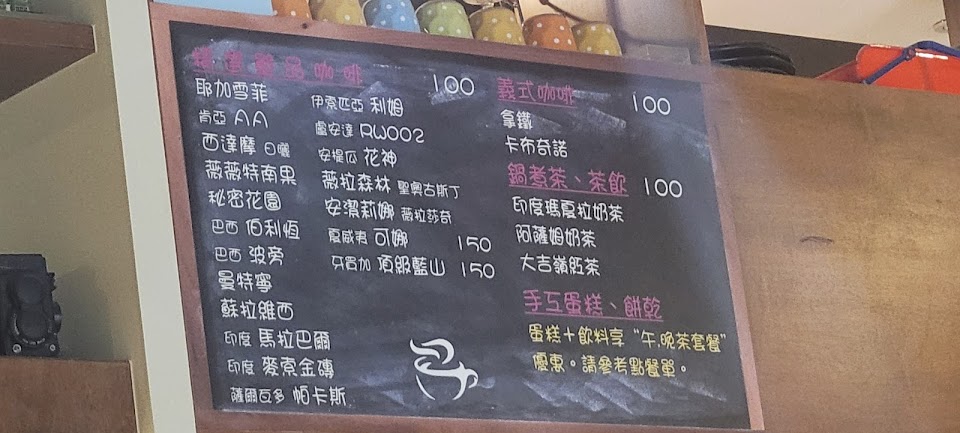 精選單品咖啡 100
耶加雪菲
肯亞 AA
西達摩 日曬
薇薇特南果
秘密花園
巴西 伯利恆
巴西 波旁
曼特寧
蘇拉維西
印度 馬拉巴爾
印度 麥索金磚
薩爾瓦多 帕卡斯
伊索匹亞 利姆
盧安達 RWOO2
安提瓜 花神
薇拉森林 聖奧古斯丁
安潔莉娜 薇拉莎奇
夏威夷 可娜 150
牙買加 頂級藍山 150
義式咖啡 100
拿鐵
卡布奇諾
鍋煮茶、茶飲 100
印度瑪夏拉奶茶
阿薩姆奶茶
大吉嶺紅茶
手工蛋糕、餅乾
蛋糕+飲料享"午.晚茶套餐"
優惠。請參考點餐單。